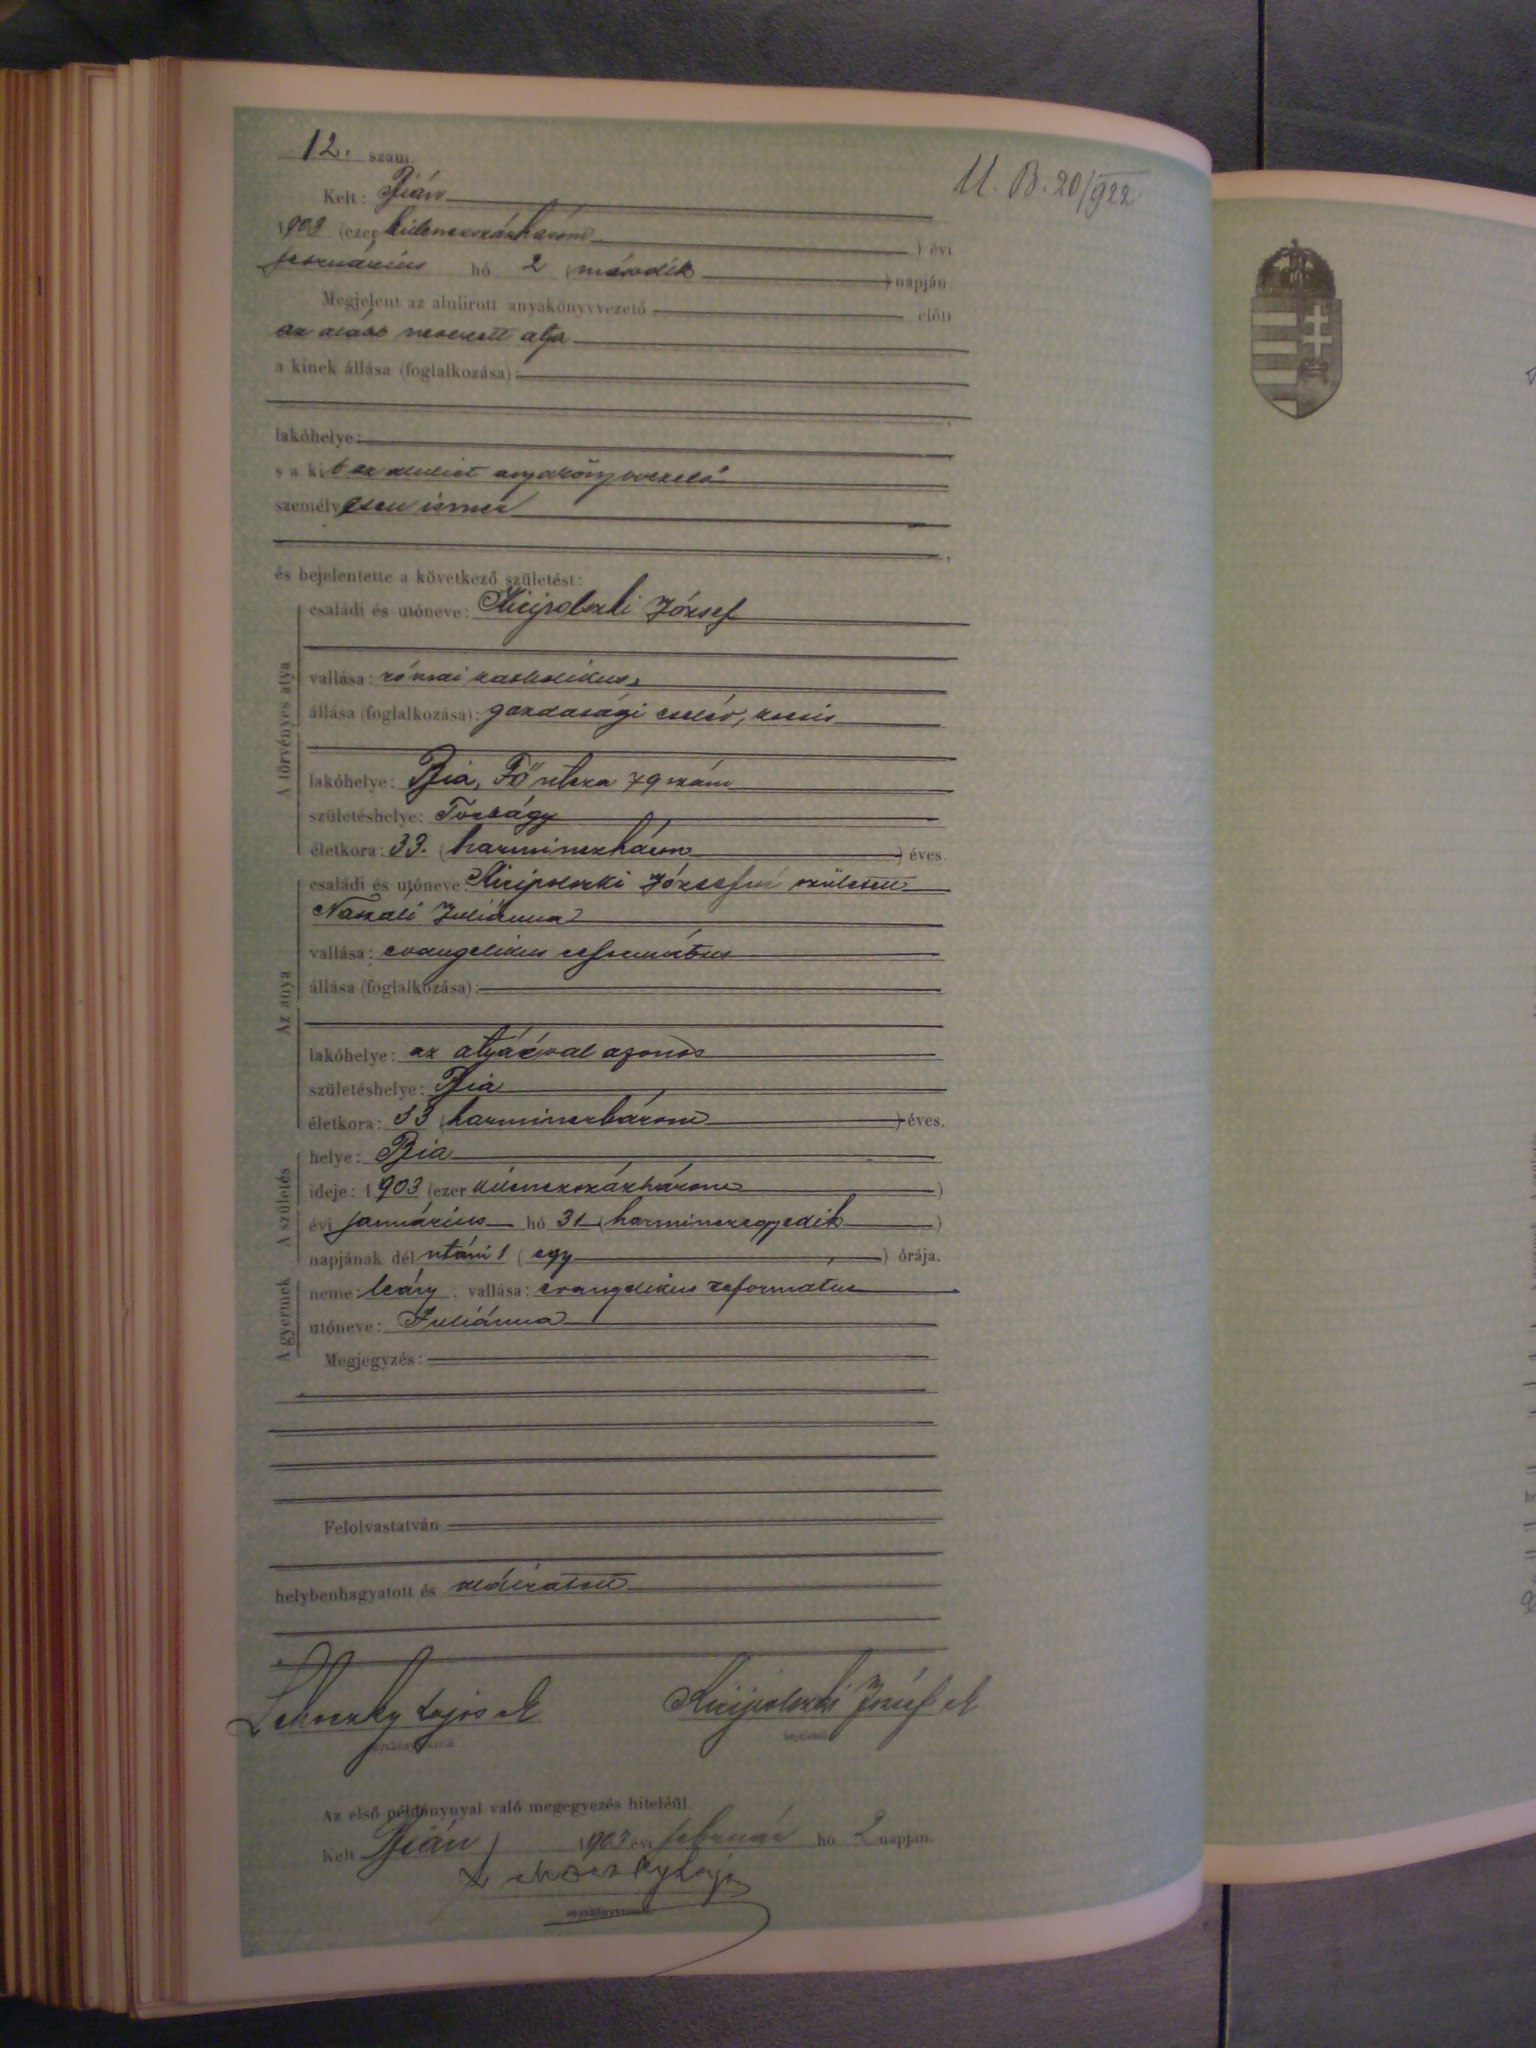 12. szám.
U. B. 20/922
Kelt: Bián
1903 (ezer kilenczszázhárom) évi
február hó 2 (második) napján.
Megjelent az alulirott anyakönyvvezető előtt
az alább nevezett atja
a kinek állása (foglalkozása):
lakóhelye:
s a kit az alulirt anyakönyvvezető
személyesen ismer
és bejelentette a következő születést:
A törvényes atya
családi és utóneve: József
vallása: római katholikus,
állása (foglalkozása): gazdasági cseléd, kocsis
lakóhelye: Bia, Fő utcza 79 szám
születéshelye: Torbágy
életkora: 33. (harminczhárom) éves.
Az anya
családi és utóneve: Józsefné született
Naszáli Juliánna
vallása: evangelikus református
állása (foglalkozása):
lakóhelye: az atyáéval azonos
születéshelye: Bia
életkora: 33 (harminczhárom) éves.
A születés
helye: Bia
ideje: 1903 (ezer kilenczszázhárom)
évi január hó 31 (harminczegyedik)
napjának dél utáni 1 (egy) órája.
A gyermek
neme: leány; vallása: evangelikus református
utóneve: Juliánna
Megjegyzés:
Felolvastatván
helybenhagyatott és aláiratott
Lajos sk József sk
anyakönyvvezető bejelentő
Az első példánynyal való megegyezés hiteléül.
Kelt Bián, 1903 évi február hó 2 napján.
Lajos
anyakönyvvezető